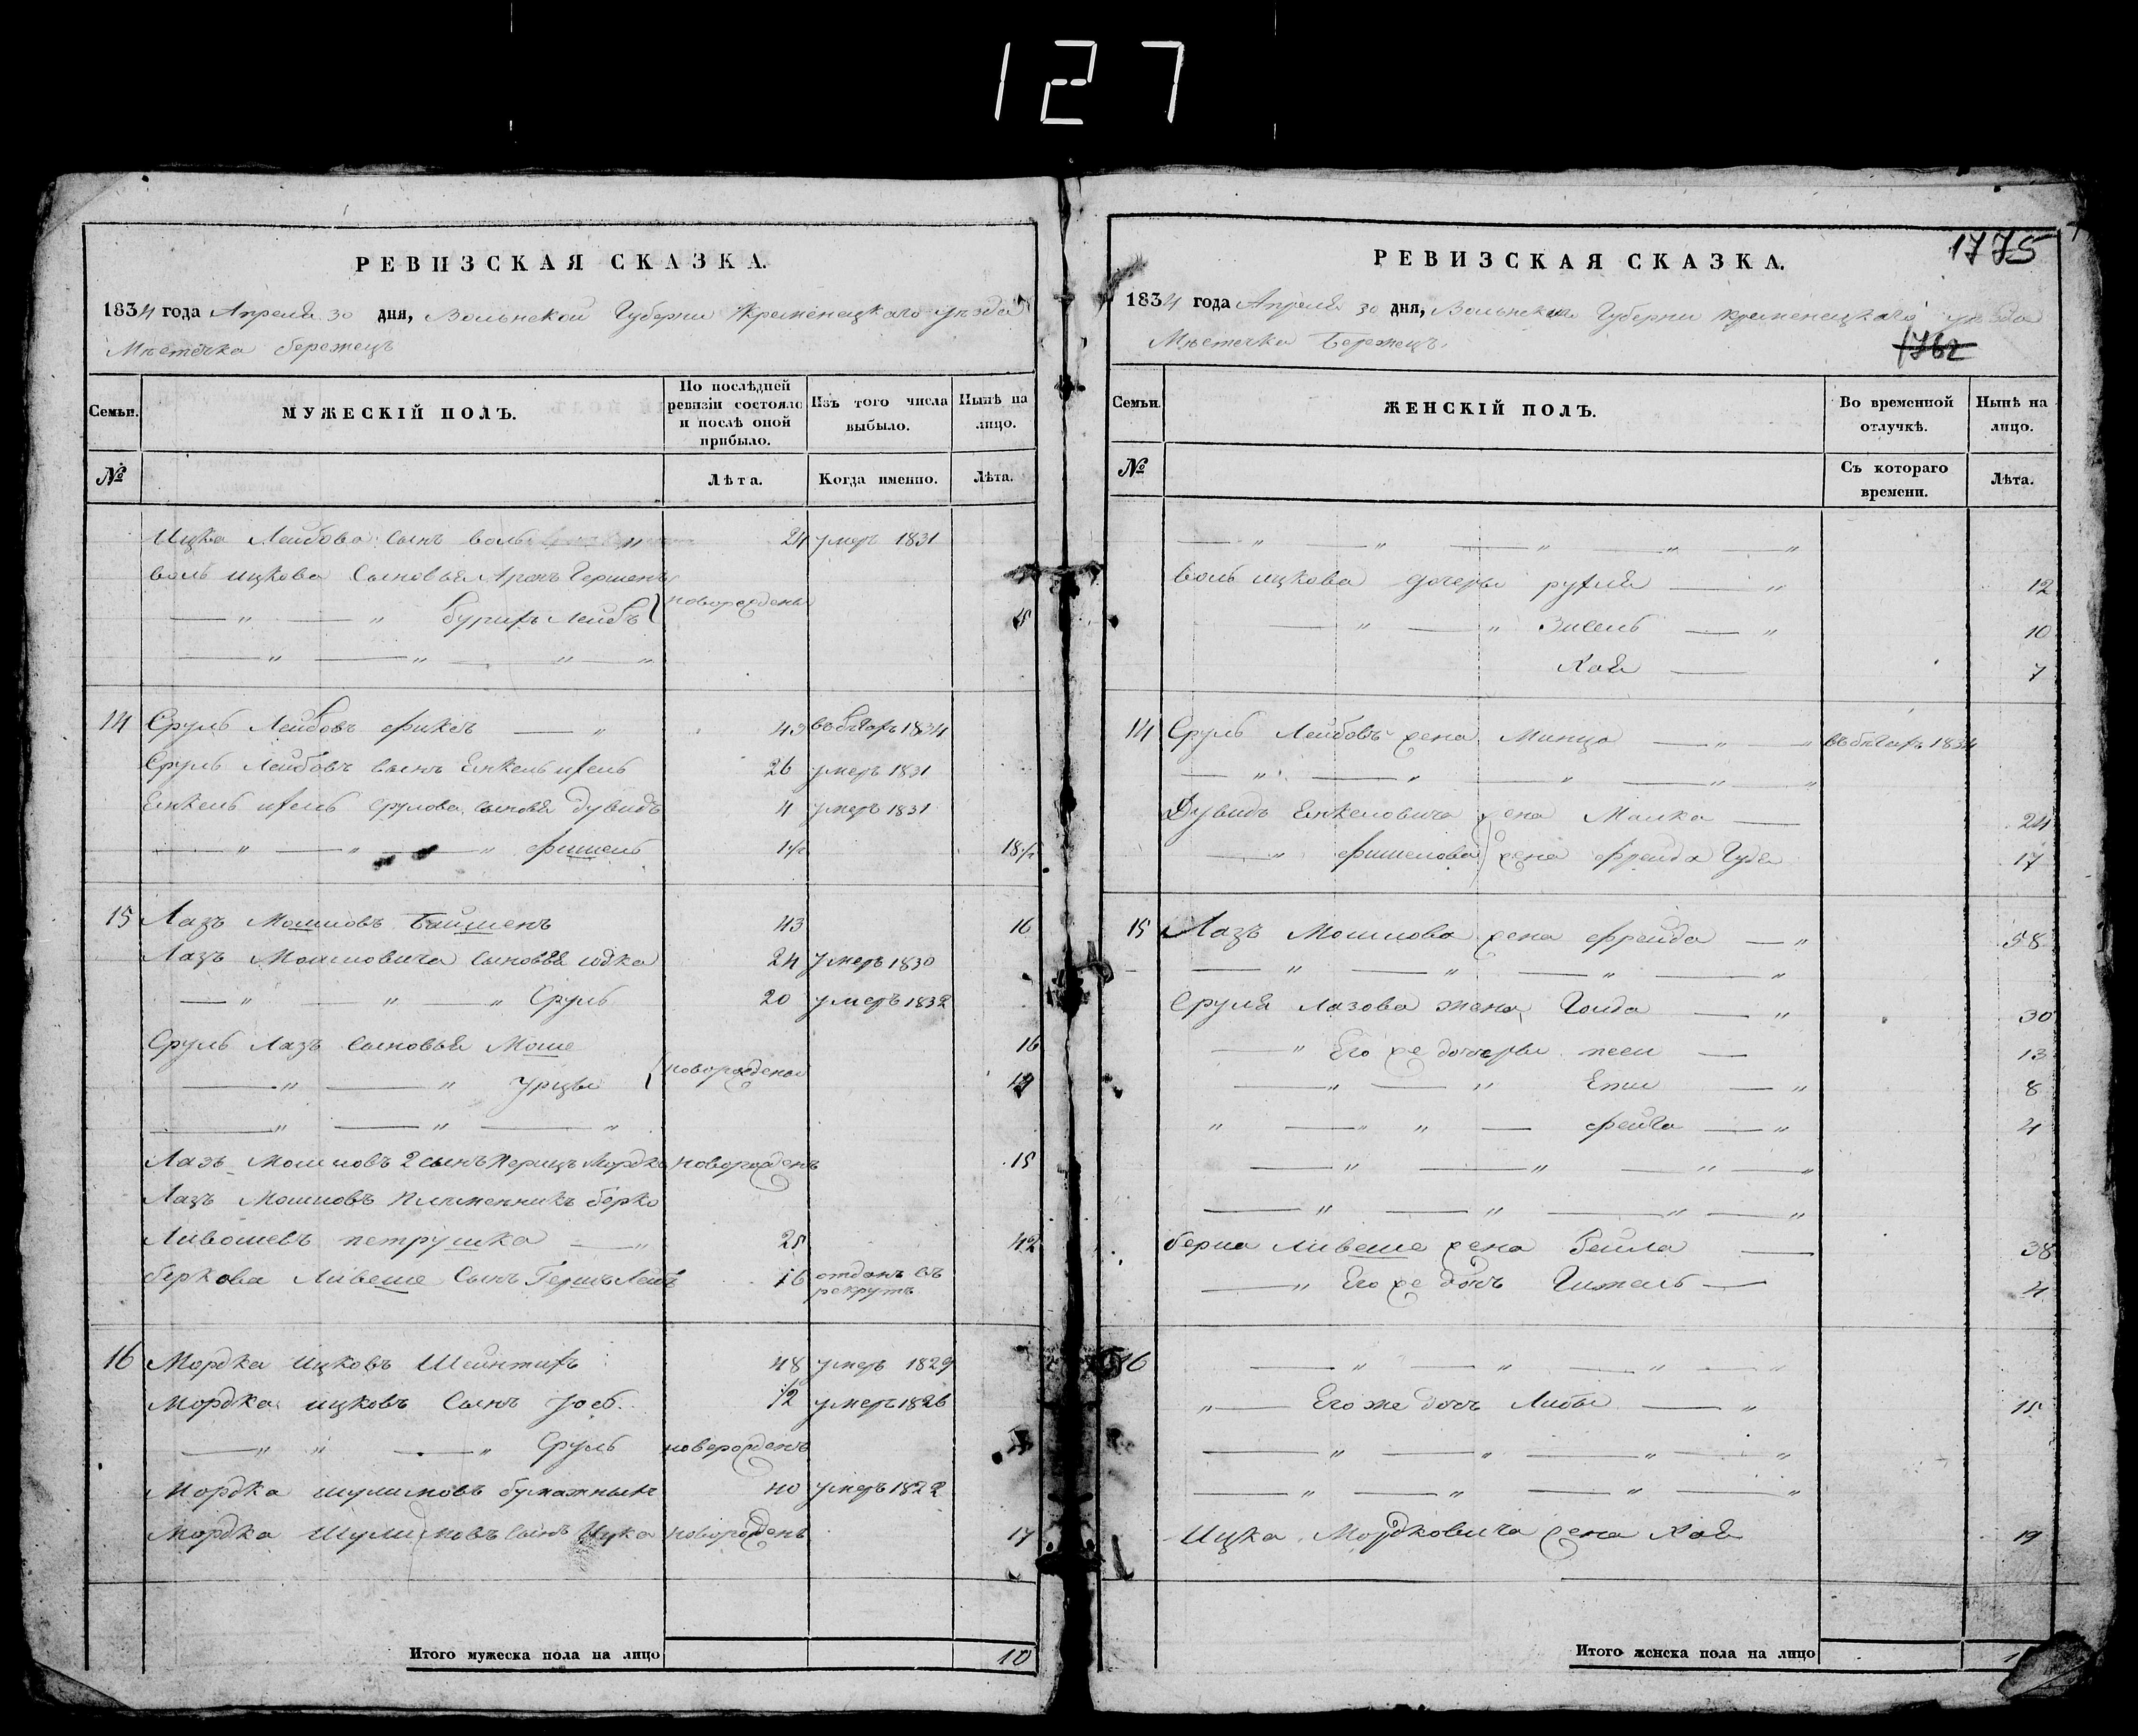 127
РЕВИЗСКАЯ СКАЗКА.
1834 года Апреля 30 дня, Волынской Губернии Кременецкаго уѣзда
Мѣстечка бережецъ
Семьи.
МУЖЕСКІЙ ПОЛЪ.
По послѣдней ревизіи состояло и послѣ оной прибыло.
Изъ того числа выбыло.
Нынѣ на лицо.
№
Лѣта.
Когда именно.
Лѣта.
Ицка Лейбова сынъ воль 24 умеръ 1831
воль ицкова сыновья Аронъ Гершенъ новорождены
— " — " Лейбъ
— " — " — " — "
14 Сруль Лейбовъ фиксъ — " 43 въ бѣгахъ 1834
Сруль Лейбовъ сынъ Енкель 26 умеръ 1831
Енкель срулова сыновя дувидъ 4 умеръ 1831
— " — " — " фишель 1 1/2 18 1/2
15 Лазъ Мошковъ 43 16
Лазъ Мошковича сыновья юдка 24 умеръ 1830
— " — " — " Сруль 20 умеръ 1832
Сруль Лазъ сыновья Моше новорождены 16
— " — " Урцы
— " — " — "
Лазъ Мошковъ 2 сынъ Перицъ Мордко новорожденъ 15
Лазъ Мошковъ племенникъ берко
Ливошевъ петрушка — " 25 42
беркова Ливеше сынъ Гершъ Лейбъ 16 отданъ въ рекруты
16 Мордка ицковъ 48 умеръ 1829
Мордка ицковъ сынъ 1/2 умеръ 1826
— " " — " Сруль новорожденъ
Мордка шулимовъ 40 умеръ 1822
Мордка Шулимовъ сынъ Ицка новорожденъ 17
Итого мужеска пола на лицо 10
1775
РЕВИЗСКАЯ СКАЗКА.
1834 года Апреля 30 дня, Волынской Губернии кременецкаго уѣзда
Мѣстечка Бережецъ.
1762
Семьи.
ЖЕНСКІЙ ПОЛЪ.
Во временной отлучкѣ.
Нынѣ на лицо.
№
Съ котораго времени.
Лѣта.
— " — " — " — " — "
воль ицкова дочеры рухля — " 12
— " — " Зисель — " 10
Хая — 7
14 Сруль Лейбовъ жена Минца — " — " въ бѣгахъ 1834
— " — " — " — " — "
Дувидъ Енкеловича жена Малка — 24
— " фишелова жена фрейда Гудея 17
15 Лазъ Мошкова жена фрейда — " 58
— " — " — " — "
Сруля Лазова жена Голда — " 30
— " Его же дочеры песи — 13
— " — " Ети — " 8
" — " " — фейга — " 4
— " — " — " — "
— " — " — " — "
берка Ливеше жена Бейла — 38
— " Его же дочъ Гитель — 4
16 — " — " — " — "
" — Его же дочъ Либы — " 15
— " — " — " — "
— " — " — " — "
Ицка Мордковича жена Хая 19
Итого женска пола на лицо